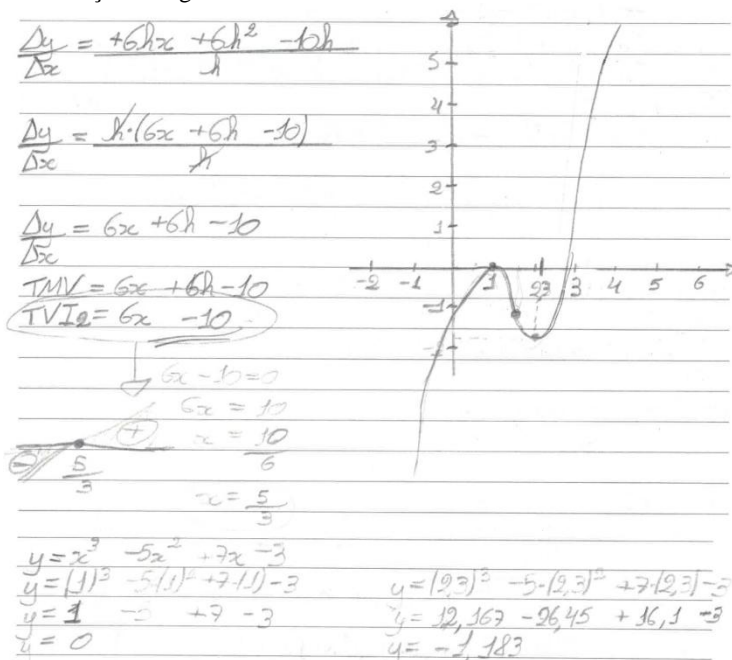 Δy/Δx = +6hx +6h² -10h / h
Δy/Δx = h·(6x +6h -10) / h
Δy/Δx = 6x +6h -10
TMV = 6x +6h -10
TVI₂ = 6x -10
6x -10 = 0
6x = 10
x = 10/6
x = 5/3
- +
5/3
5
4
3
2
1
-2 -1 1 2,3 3 4 5 6
-1
y = x³ -5x² +7x -3
y = (1)³ -5(1)² +7·(1) -3
y = 1 -5 +7 -3
y = 0
y = (2,3)³ -5·(2,3)² +7·(2,3) -3
y = 12,167 -26,45 +16,1 -3
y = -1,183